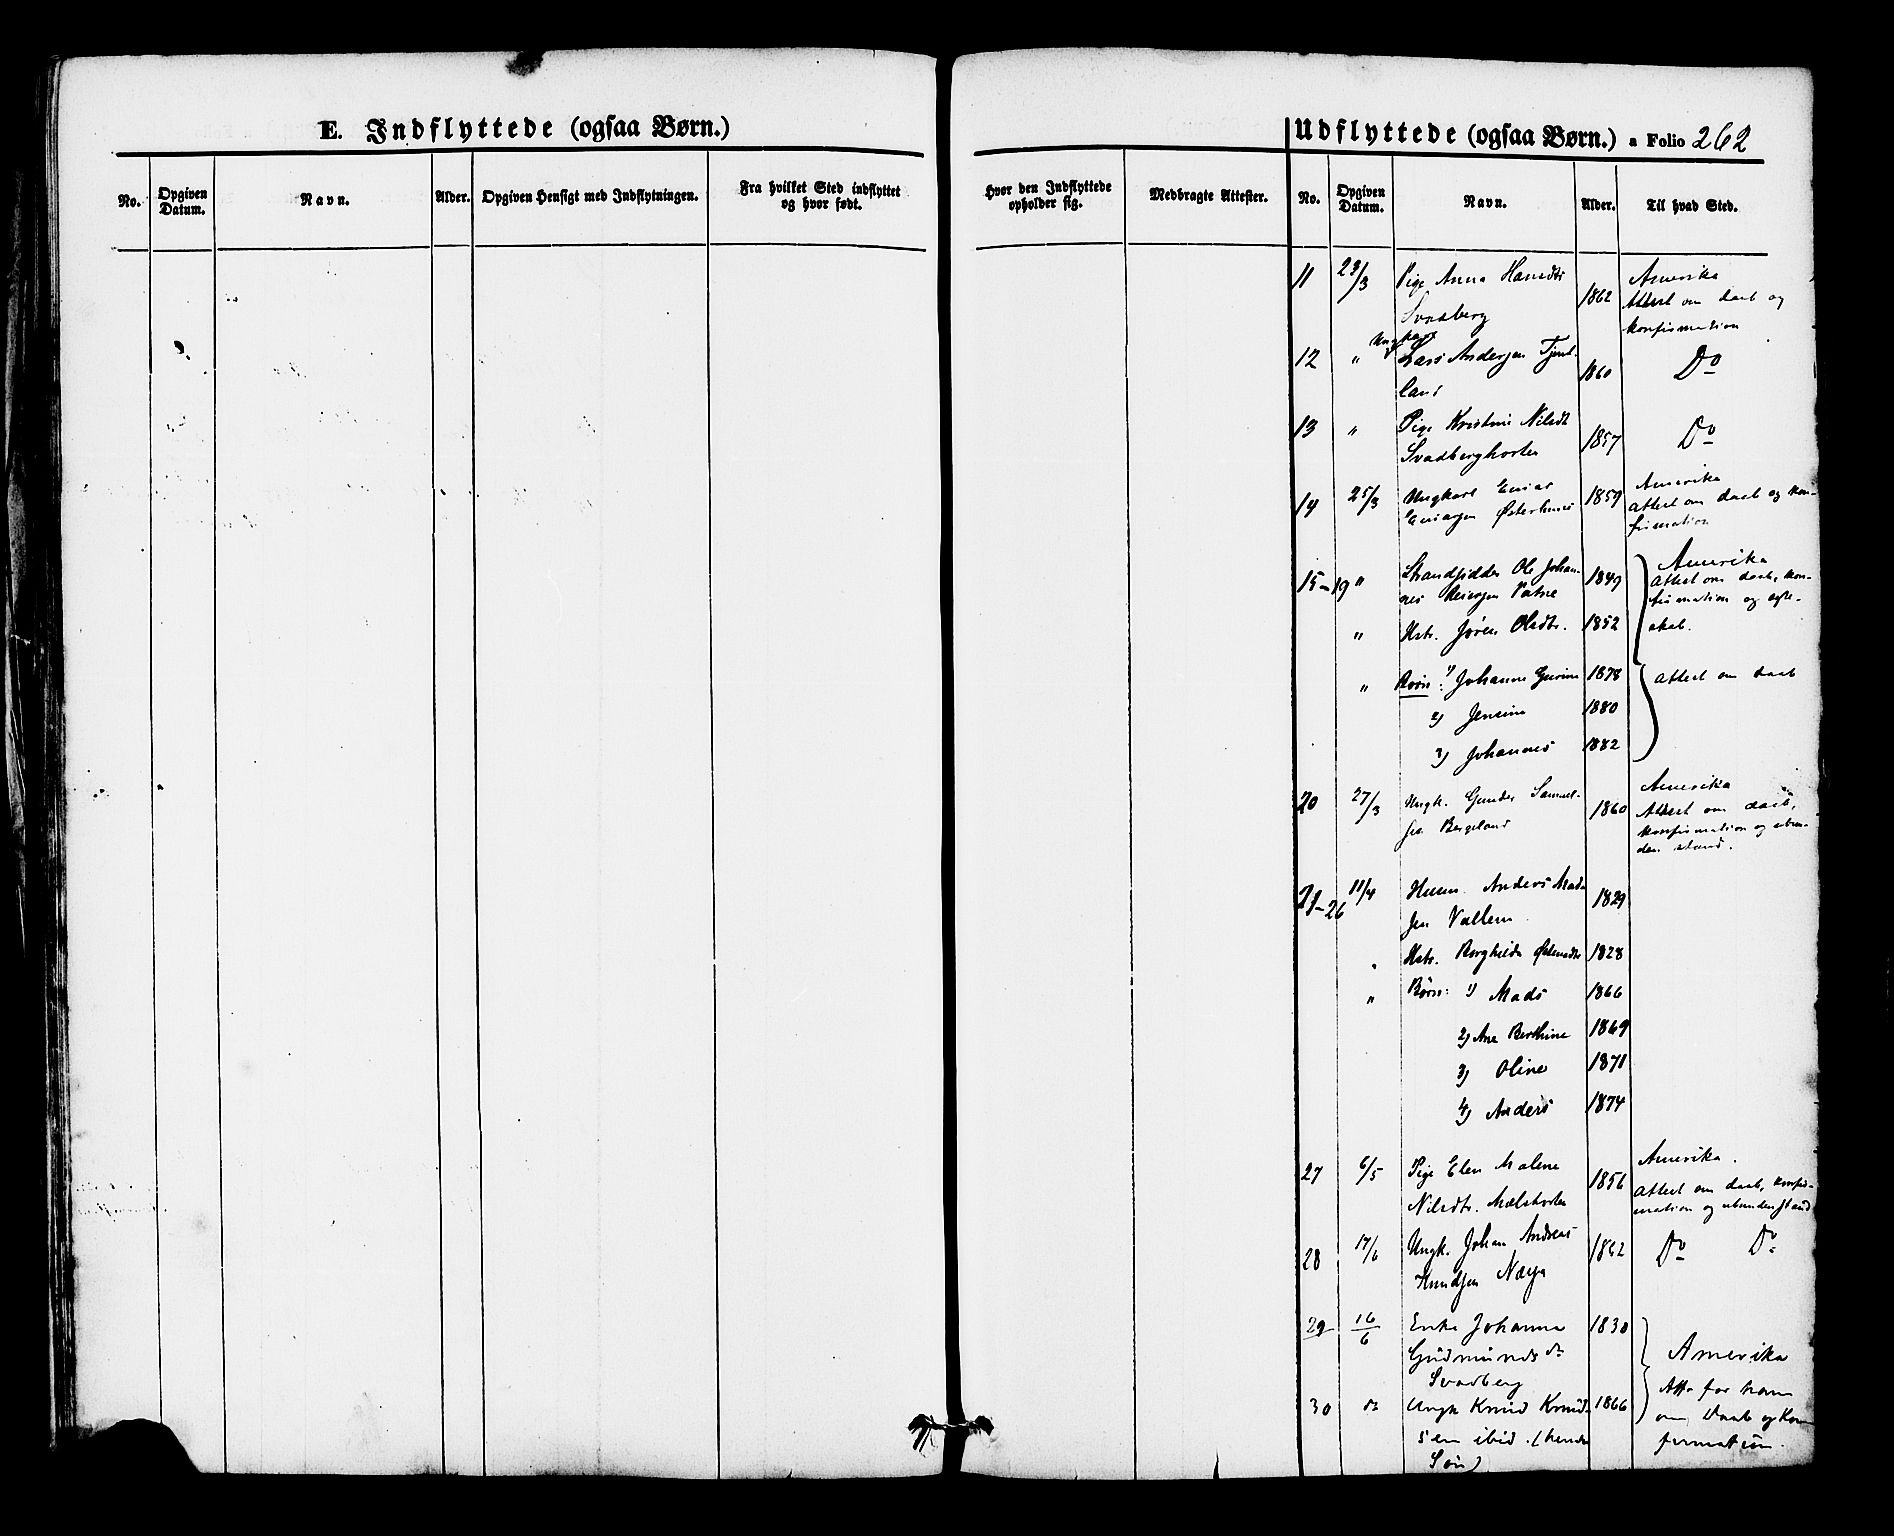 E. Indflyttede (ogsaa Børn.)
No.
Opgiven Datum.
Navn.
Alder.
Opgiven Hensigt med Indflytningen.
Fra hvilket Sted indflyttet
og hvor født.
Hvor den Indflyttede
opholder sig.
Medbragte Attester.
Udflyttede (ogsaa Børn.) a Folio 262
No.
Opgiven Datum.
Navn.
Alder.
Til hvad Sted.
11 23/3 Pige Anna Hansdtr 1862 Amerika
Svadberg Attest om daab og
konfirmation
12 " Ungkarl Lars Andersen Tjent- 1860 Do
land
13 " Pige Kristine Nilsdt 1857 Do
Svadberghorten
14 25/3 Ungkarl Einar 1859 Amerika
Einarsen Østerhus Attest om daab og kon-
firmation
15-19 " Strandsidder Ole Johan- 1849 Amerika
nes Reiersen Patne attest om daab, kon-
firmation og ægte-
" Hstr. Jøren Olsdtr. 1852 skab.
" Børn: 1) Johanne Gurine 1878 attest om daab
2) Jensine 1880
3) Johannes 1882
20 27/3 Ungk. Gunder Samuel- 1860 Amerika
sen Bergeland Attest om daab,
konfirmation og ubun-
den stand.
21-26 11/4 Husm. Anders Mad- 1829
sen Vallem
" Hstr. Borghilda Østensdtr 1828
" Børn: 1) Mads 1866
2) Ane Berthine 1869
3) Oline 1871
4) Anders 1874
27 6/5 Pige Elen Malene 1856 Amerika.
Nilsdtr. Mælshorten Attest om daab, konfir-
mation og ubunden stand
28 17/6 Ungk. Johan Andreas 1862 Do Do
Knudsen
29 16/6 Enke Johanna 1830 Amerika
Gudmunds dr
Svadberg
30 do Ungk Knud Knud- 1866 Att. for ham
sen ibid. (hendes om Daab og Kon
Søn) firmation.